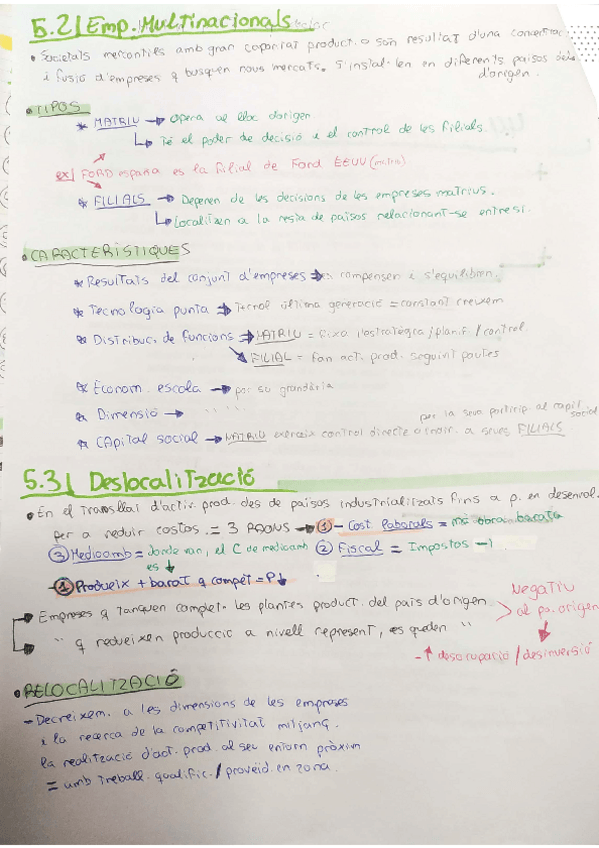 5.2| Emp. Multinacionals
• Societats mercantils amb gran capacitat product. o són resultat d'una concentrac.
i fusió d'empreses q busquen nous mercats. S'instal·len en diferents països dels
d'origen.
• TIPOS
* MATRIU → Opera al lloc d'origen
↳ Té el poder de decisió i el control de les filials.
ex| FORD españa es la filial de Ford EEUU (matriu)
* FILIALS → Depenen de les decisions de les empreses matrius.
↳ Localitzen a la resta de països relacionant-se entre sí.
• CARACTERÍSTIQUES
* Resultats del conjunt d'empreses → es compensen i s'equilibren.
* Tecnologia punta → Tecnol última generació = constant creixem
* Distribuci. de funcions → MATRIU = fixa l'estratègia / planif / control
↘ FILIAL = fan act. prod. seguint pautes
* Econom. escala → por su grandària
* Dimensió → " " " "
per la seva particip. al capit
social
* CApital social → MATRIU exerceix control directe o indir. a seves FILIALS
5.3| Deslocalització
• En el trasllat d'activ. prod. des de països industrialitzats fins a p. en desenvol.
per a reduir costos. = 3 RAONS → ① - Cost laborals = mà obra barata
③ Medioamb = donde van, el C de medioamb ② Fiscal = Impostos -!
es ↓
- ① Produeix + barat q compet = P↓
→ Empreses q tanquen complet. les plantes product. del país d'origen
Negatiu
> al pa. origen
→ " q redueixen producció a nivell represent, es queden "
- ↑ desocupació / desinversió
• RELOCALITZACIÓ
- Decreixem. a les dimensions de les empreses
i la recerca de la competitivitat mitjanç.
la realització d'act. prod. al seu entorn pròxim
= amb treball. qualific. / proveïd. en zona.